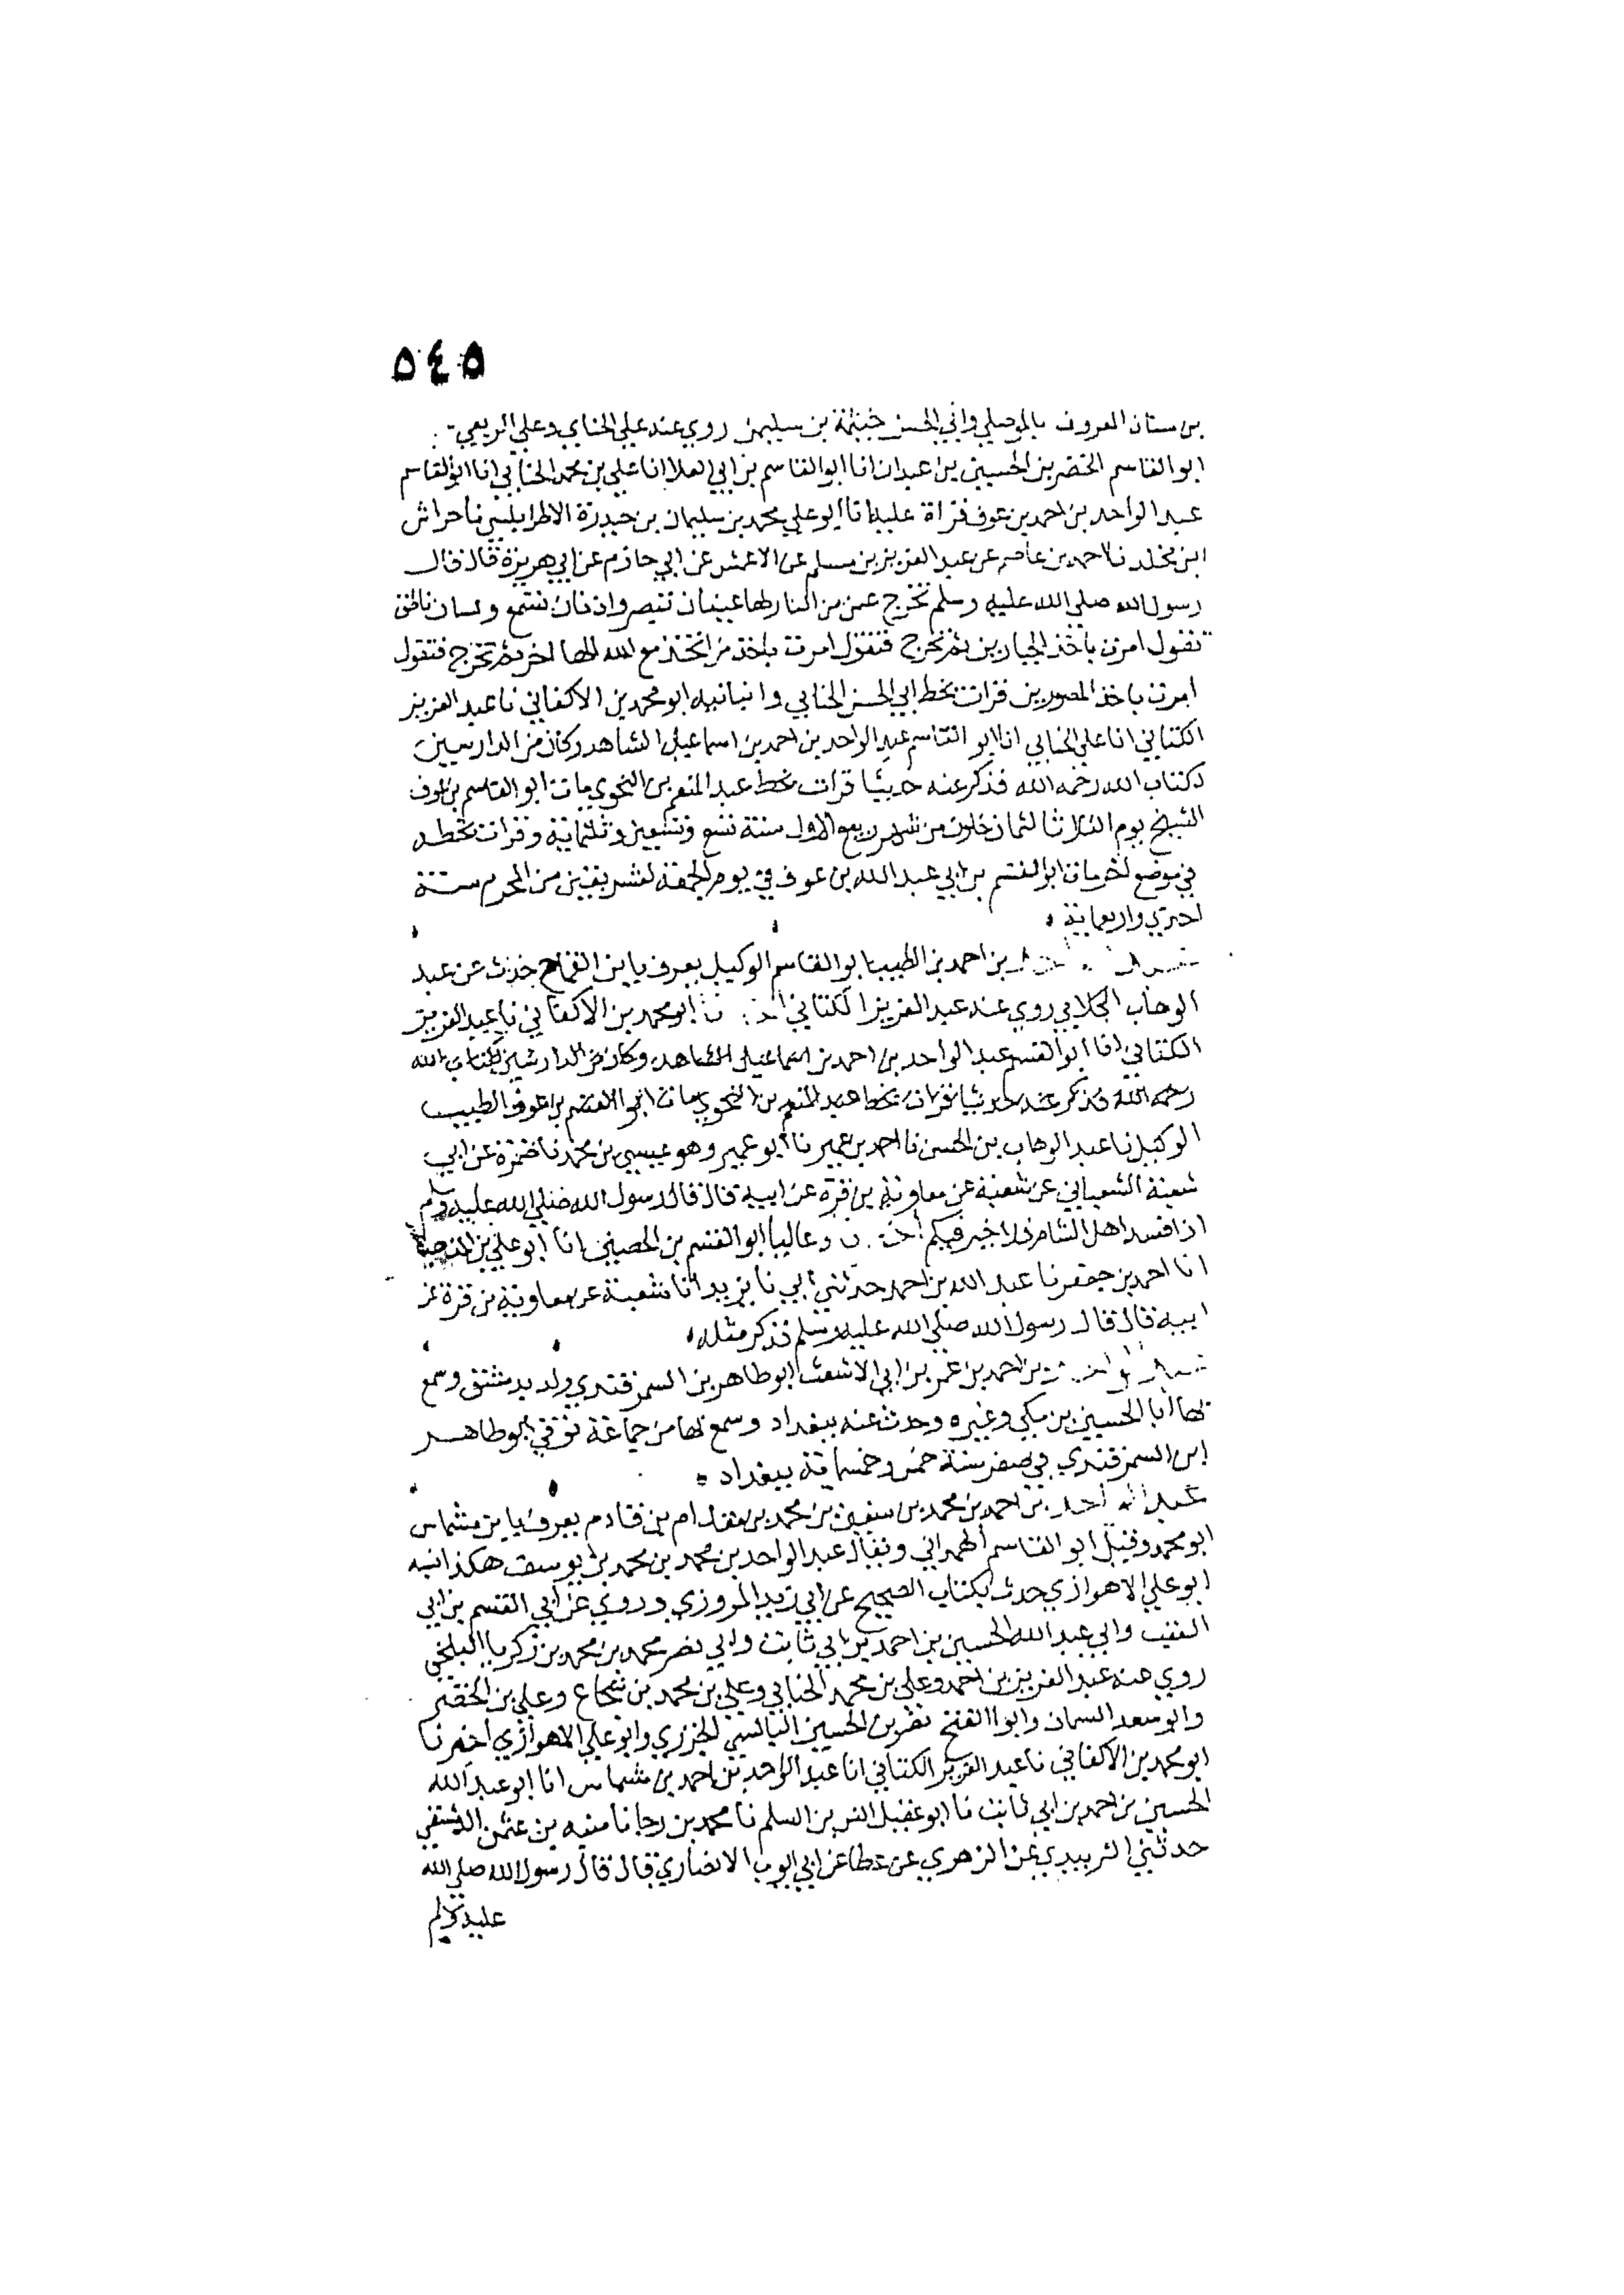 ٥٤٥
بن ستان المعروف بالموصلي وابي الحسن خيثمة بن سليمن روي عنه علي الحنايي وعلي الربعي
ابو القاسم الخضر بن الحسين بن عبدان انا ابو القاسم بن ابي العلا انا علي بن محمد الحنايي انا ابو القاسم
عبد الواحد بن احمد بن عوف قراة عليه انا ابو علي محمد بن سليمان بن حيدرة الاطرابلسي نا حراش
ابن مخلد نا احمد بن عاصم عن عبد العزيز بن مسلم عن الاعمش عن ابي حازم عن ابي هريرة قال قال
رسول الله صلي الله عليه وسلم تخرج عنق من النار لها عينان تبصر واذنان تسمع ولسان ناطق
تقول امرت باخذ الجبارين ثم تخرج فتقول امرت باخذ من اتخذ مع الله الها اخر ثم تخرج فتقول
امرت باخذ المصورين قرات بخط ابي الحسن الحنايي وانبانيه ابو محمد بن الاكفاني نا عبد العزيز
الكتاني انا علي الحنايي انا ابو القاسم عبد الواحد بن احمد بن اسماعيل الشاهد وكان من الدارسين
لكتاب الله رحمه الله فذكر عنه حديثا قرات بخط عبد المنعم بن النحوي مات ابو القاسم بن عوف
الشيخ يوم الثلاثا لثمان خلون من شهر ربيع الاول سنة تسع وتسعين وثلثماية وقرات بخطه
في موضع اخر مات ابو القسم بن ابي عبد الله بن عوف في يوم الجمعة لعشر بقين من المحرم سنة
احدي واربعماية
بن احمد بن الطبيب ابو القاسم الوكيل يعرف بابن القماح حدث عن عبد
الوهاب الكلابي روي عنه عبد العزيز الكتاني ابو محمد بن الاكفاني نا عبد العزيز
الكتاني انا ابو القسم عبد الواحد بن احمد بن اسماعيل الشاهد وكان من الدارسين لكتاب الله
رحمه الله فذكر عنه حديثا قرات بخط عبد المنعم بن النحوي مات ابو القسم بن عوف الطبيب
الوكيل نا عبد الوهاب بن الحسن نا احمد بن عمير نا ابو عمير وهو عيسي بن محمد نا ضمرة عن ابي
شعبة الشعباني عن شعبة عن معاوية بن قرة عن ابيه قال قال رسول الله صلي الله عليه وسلم
اذا فسد اهل الشام فلا خير فيكم وعاليا ابو القسم بن الحصين انا ابو علي بن المذهب
انا احمد بن جعفر نا عبد الله بن احمد حدثني ابي نا يزيد انا شعبة عن معاوية بن قرة عن
ابيه قال قال رسول الله صلي الله عليه وسلم فذكر مثله
بن احمد بن عمر بن ابي الاشعث ابو طاهر بن السمرقندي ولد بدمشق وسمع
بها ابا الحسين بن مكي وغيره وحدث عنه ببغداد وسمع بها من جماعة توفي ابو طاهر
ابن السمرقندي في صفر سنة خمس وخمسماية ببغداد
بن احمد بن محمد بن سفين بن محمد بن مقدام بن قادم يعرف بابن مشماس
ابو محمد وقيل ابو القاسم الهمداني ويقال عبد الواحد بن محمد بن محمد بن يوسف هكذا نسبه
ابو علي الاهوازي حدث بكتاب الصحيح عن ابي زيد المروزي وروي عن ابي القسم بن ابي
العقب وابي عبد الله الحسين بن احمد بن ابي ثابت وابي نصر محمد بن محمد بن زكريا البلخي
روي عنه عبد العزيز بن احمد وعلي بن محمد الحنايي وعلي بن محمد بن شجاع وعلي بن الخضر
وابو سعد السمان وابو الفتح نصر بن الحسين البالسي الجزري وابو علي الاهوازي اخبرنا
ابو محمد بن الاكفاني نا عبد العزيز الكتاني انا عبد الواحد بن احمد بن مشماس انا ابو عبد الله
الحسين بن احمد بن ابي ثابت نا ابو عقيل انس بن السلم نا محمد بن رجا نا منبه بن عثمن الدمشقي
حدثني الزبيدي عن الزهري عن عطا عن ابي ايوب الانصاري قال قال رسول الله صلي الله
عليه وسلم